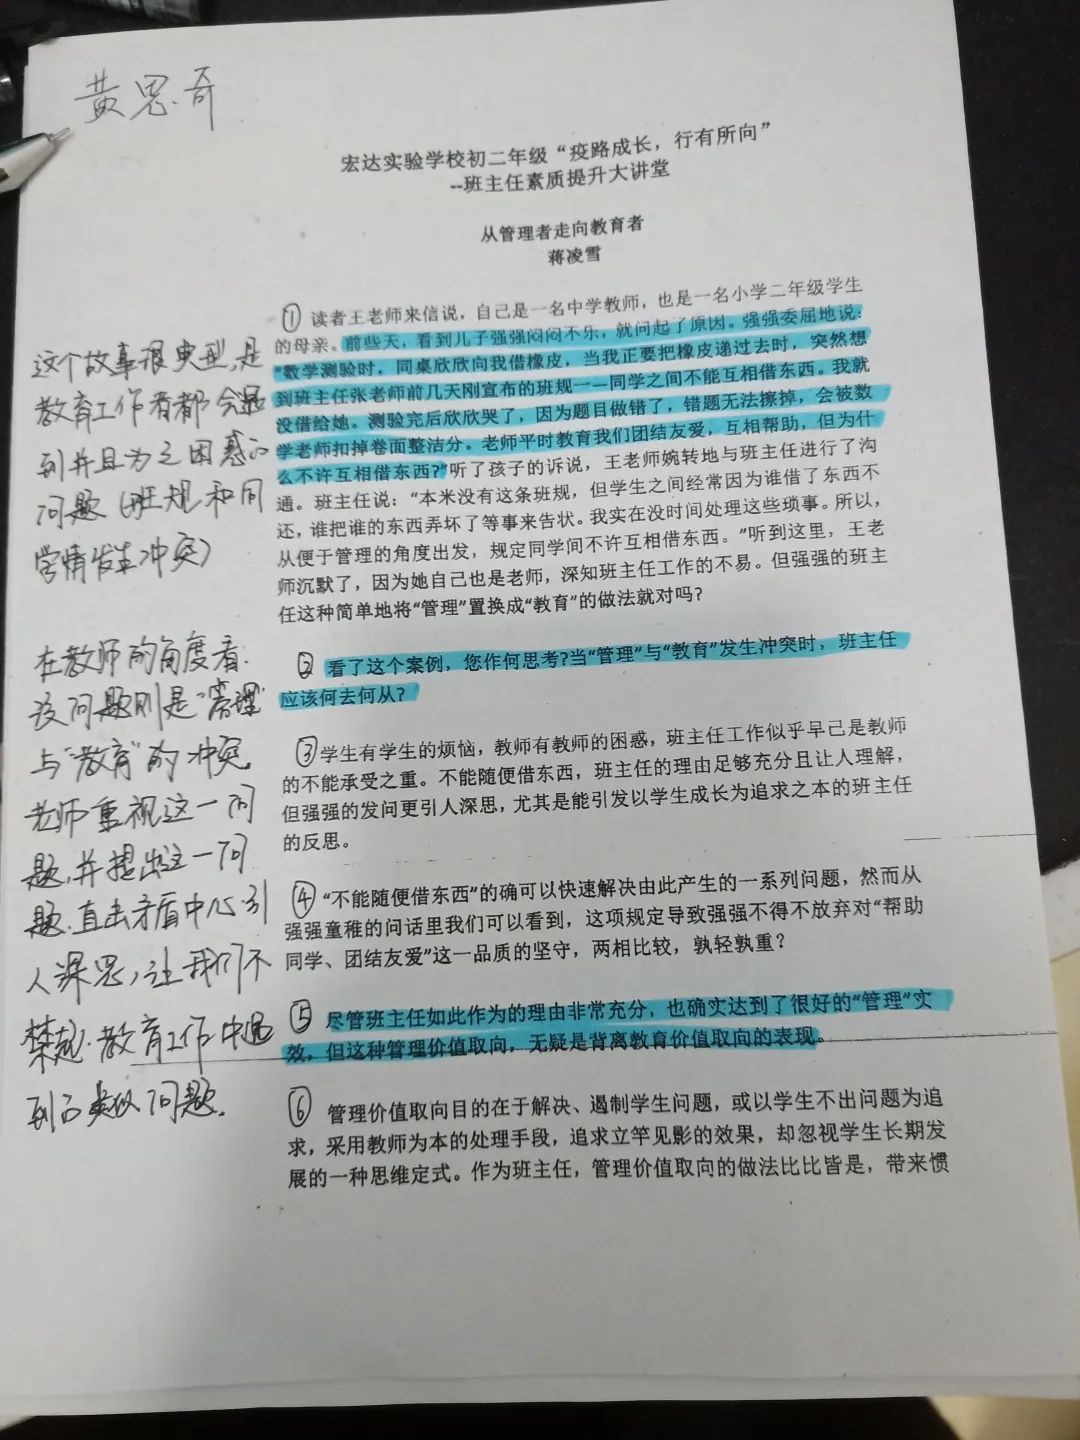 黄思奇
宏达实验学校初二年级“疫路成长，行有所向”
--班主任素质提升大讲堂
从管理者走向教育者
蒋凌雪
① 读者王老师来信说，自己是一名中学教师，也是一名小学二年级学生
的母亲。前些天，看到儿子强强闷闷不乐，就问起了原因。强强委屈地说：
“数学测验时，同桌欣欣向我借橡皮，当我正要把橡皮递过去时，突然想
到班主任张老师前几天刚宣布的班规——同学之间不能互相借东西。我就
没借给她。测验完后欣欣哭了，因为题目做错了，错题无法擦掉，会被数
学老师扣掉卷面整洁分。老师平时教育我们团结友爱，互相帮助，但为什
么不许互相借东西?”听了孩子的诉说，王老师婉转地与班主任进行了沟
通。班主任说：“本米没有这条班规，但学生之间经常因为谁借了东西不
还，谁把谁的东西弄坏了等事来告状。我实在没时间处理这些琐事。所以，
从便于管理的角度出发，规定同学间不许互相借东西。”听到这里，王老
师沉默了，因为她自己也是老师，深知班主任工作的不易。但强强的班主
任这种简单地将“管理”置换成“教育”的做法就对吗?
② 看了这个案例，您作何思考?当“管理”与“教育”发生冲突时，班主任
应该何去何从?
③ 学生有学生的烦恼，教师有教师的困惑，班主任工作似乎早已是教师
的不能承受之重。不能随便借东西，班主任的理由足够充分且让人理解，
但强强的发问更引人深思，尤其是能引发以学生成长为追求之本的班主任
的反思。
④ “不能随便借东西”的确可以快速解决由此产生的一系列问题，然而从
强强童稚的问话里我们可以看到，这项规定导致强强不得不放弃对“帮助
同学、团结友爱”这一品质的坚守，两相比较，孰轻孰重？
⑤ 尽管班主任如此作为的理由非常充分，也确实达到了很好的“管理”实
效，但这种管理价值取向，无疑是背离教育价值取向的表现。
⑥ 管理价值取向目的在于解决、遏制学生问题，或以学生不出问题为追
求，采用教师为本的处理手段，追求立竿见影的效果，却忽视学生长期发
展的一种思维定式。作为班主任，管理价值取向的做法比比皆是，带来惯
这个故事很典型，是
教育工作者都会遇
到并且为之困惑的
问题（班规和同
学情发生冲突）
在教师的角度看.
该问题则是“管理”
与“教育”的冲突
老师重视这一问
题，并提出这一问
题.直击矛盾中心.引
人深思，让我们不
禁想.教育工作中遇
到的类似问题.